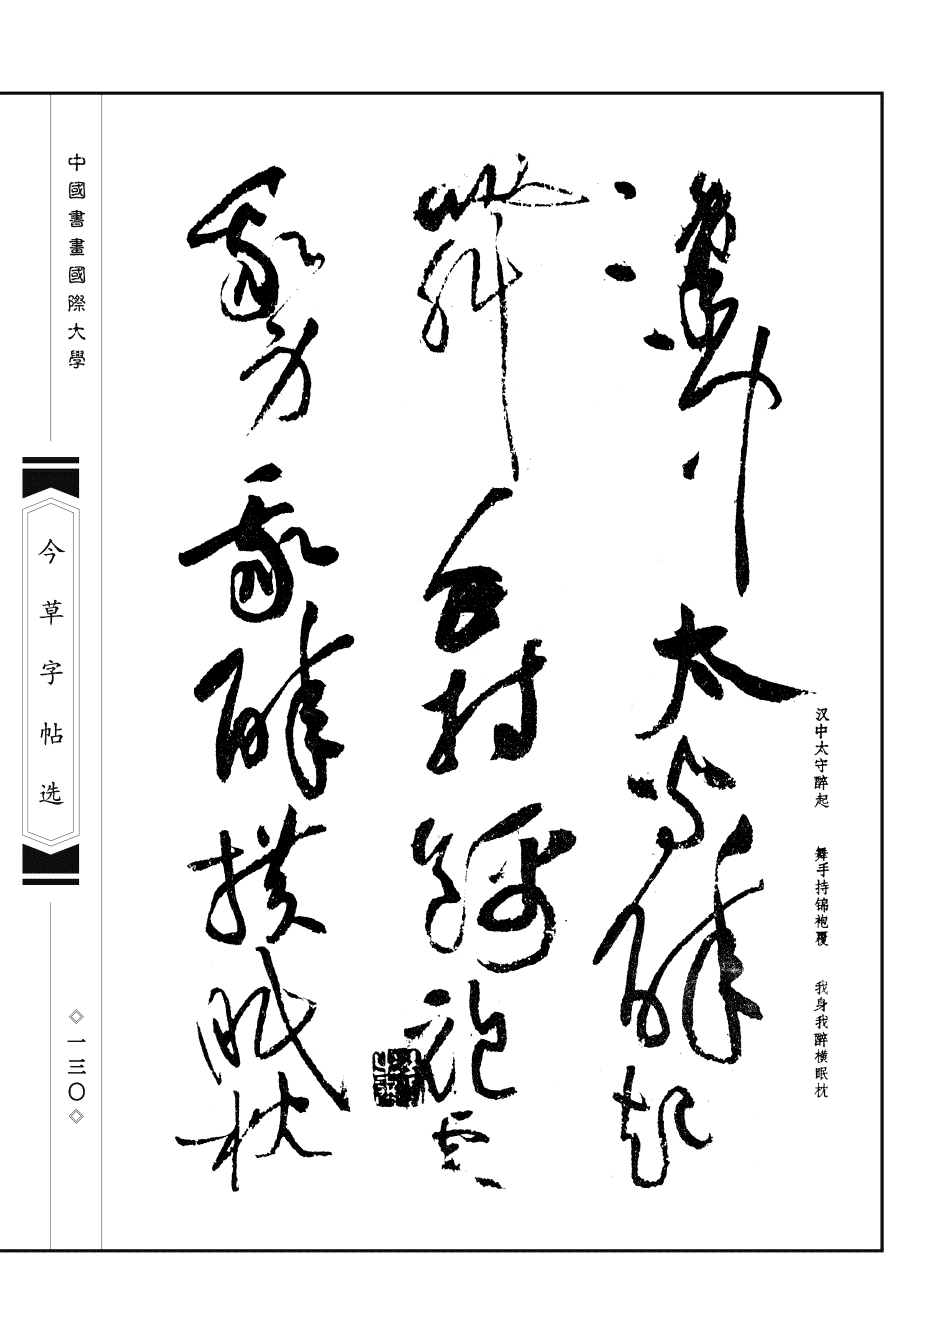 漢中太守醉起
舞手持錦袍覆
我身我醉橫眠枕
汉中太守醉起　舞手持锦袍覆　我身我醉横眠枕
中國書畫國際大學
今草字帖选
◇一三〇◇